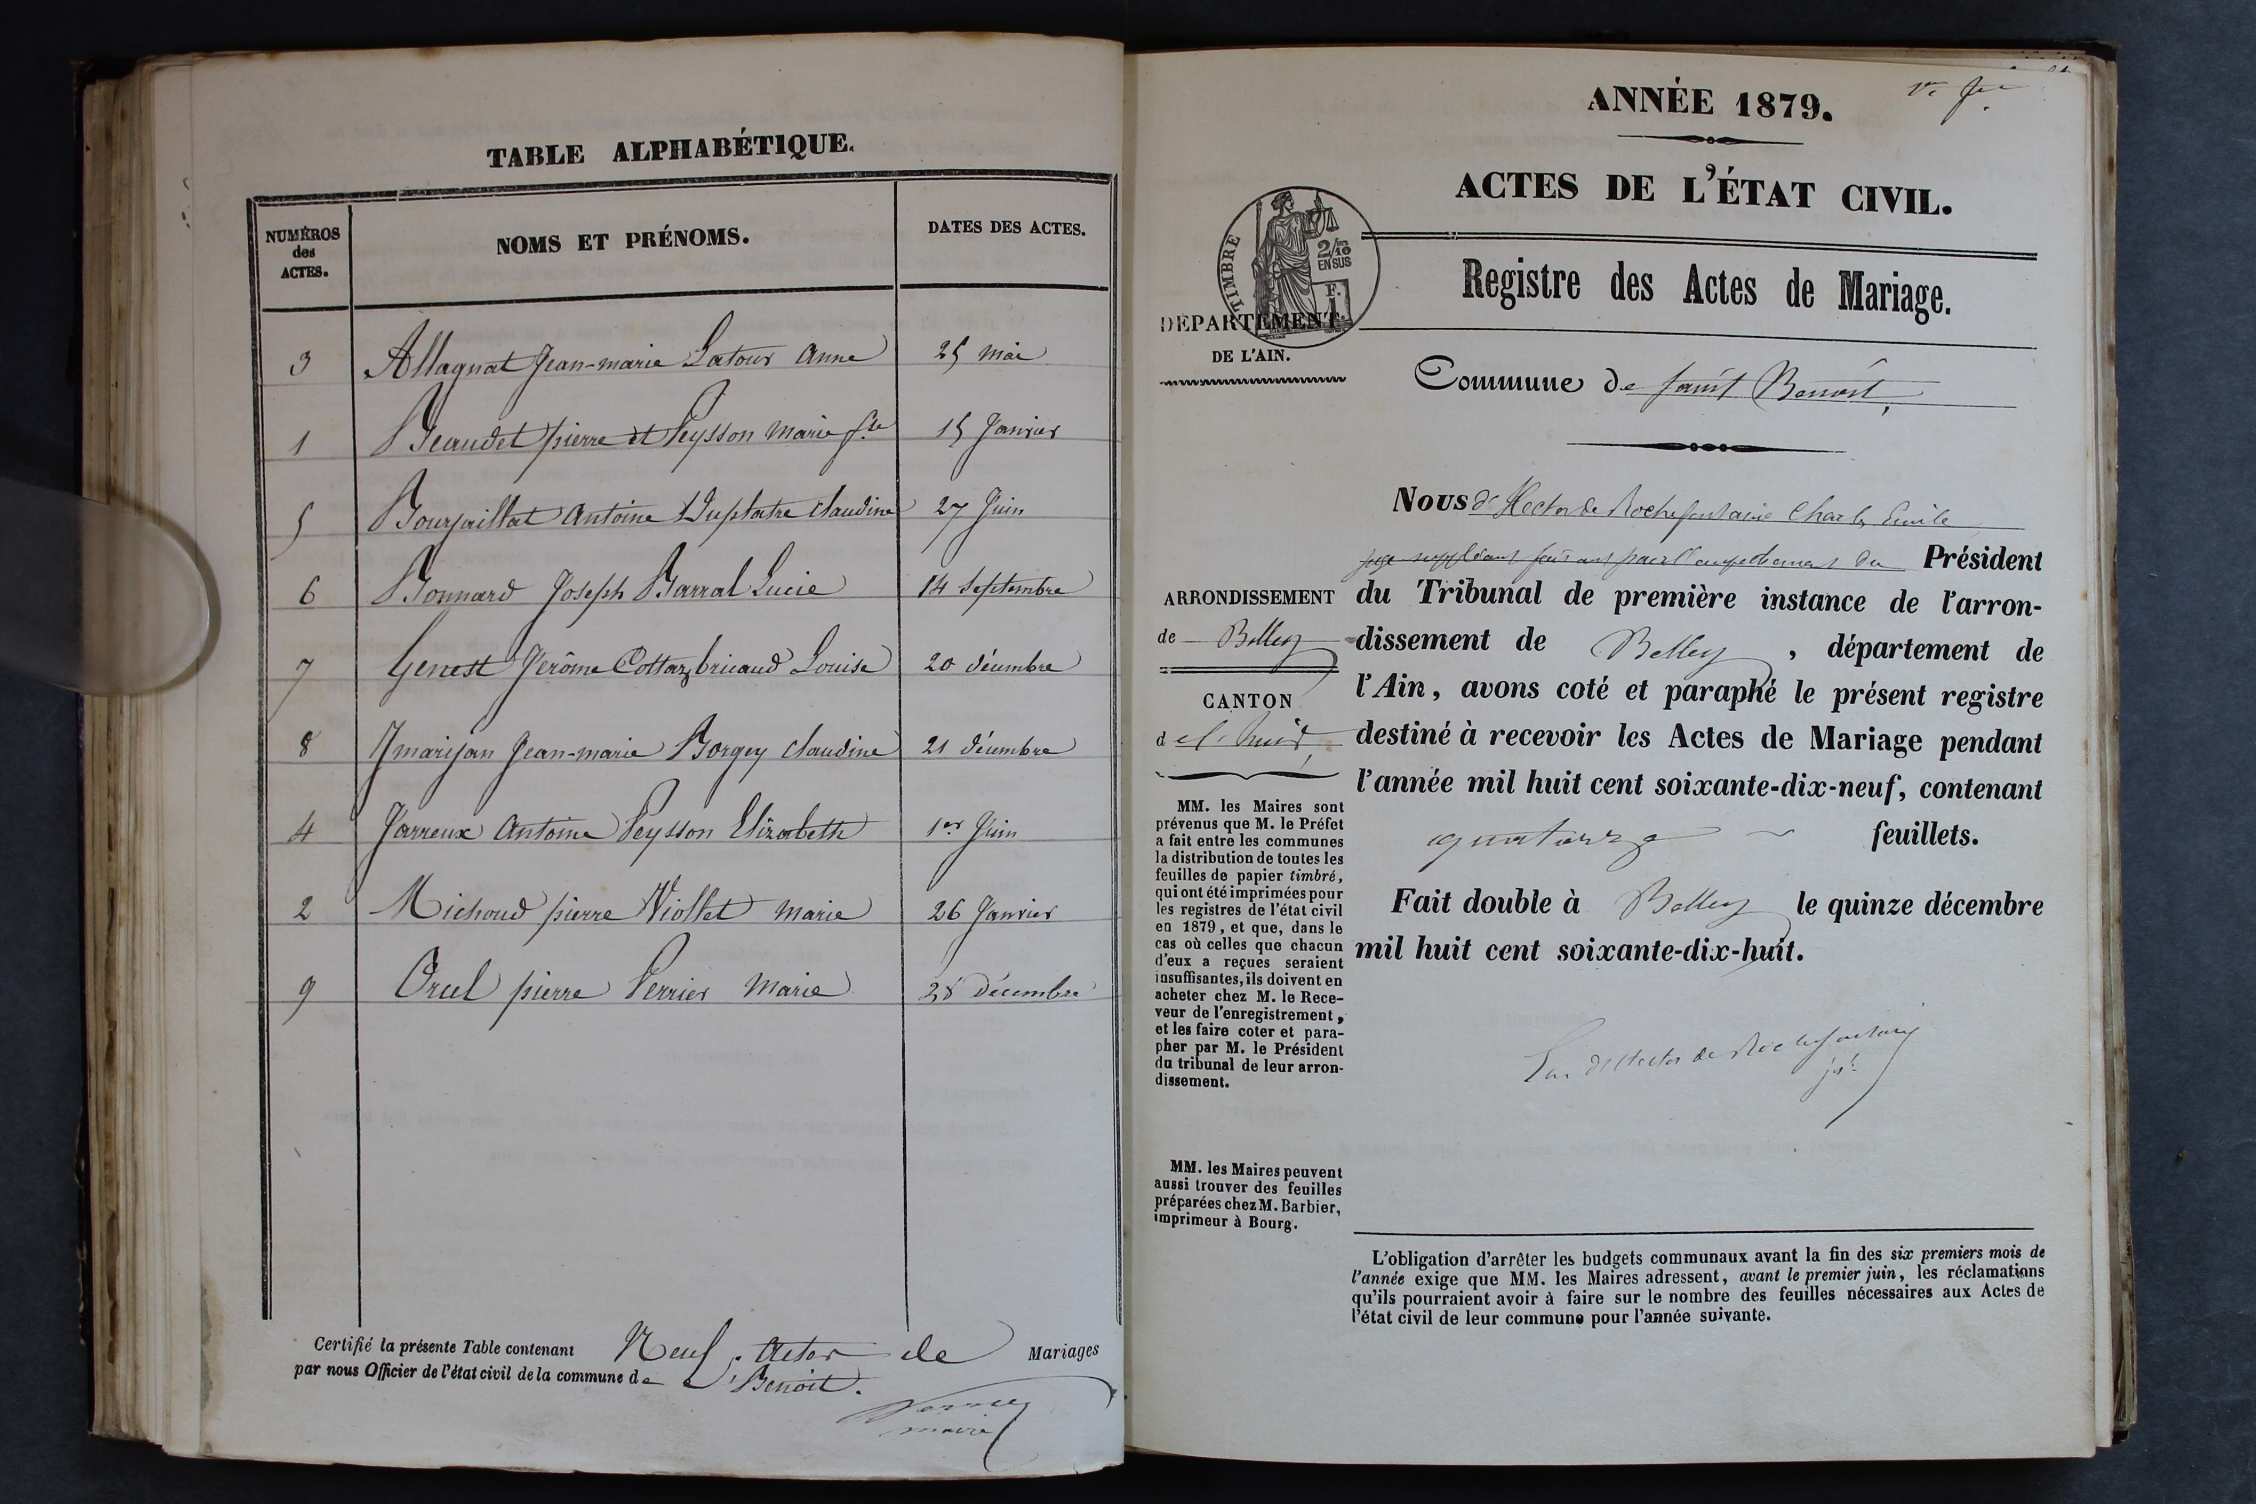 TABLE ALPHABÉTIQUE.
NUMÉROS des ACTES. NOMS ET PRÉNOMS. DATES DES ACTES.
3 Allagnat Jean-marie Latour Anne 25 mai
1 Beaudet pierre et Peysson Marie fse 15 Janvier
5 Bourjaillat Antoine Duplatre Claudine 27 Juin
6 Bonnard Joseph Barral Lucie 14 Septembre
7 Genest Jérôme Cottaz bricaud Louise 20 décembre
8 Jmarijan Jean-marie Borgey Claudine 21 décembre
4 Jarreux Antoine Peysson Elizabeth 1er Juin
2 Michoud pierre Viollet Marie 26 Janvier
9 Orcel pierre Perrier Marie 28 décembre
Certifié la présente Table contenant Neuf Actes de Mariages
par nous Officier de l'état civil de la commune de St Benoit.
maire
ANNÉE 1879.
ACTES DE L'ÉTAT CIVIL.
TIMBRE
2/10 EN SUS
F.
1
DEPARTEMENT
DE L'AIN.
Registre des Actes de Mariage.
Commune de Saint Benoit
Nous d'Hector de Rochefontaine Charles Emile
juge suppléant faisant pour l'empêchement du Président
du Tribunal de première instance de l'arron-
dissement de Belley, département de
l'Ain, avons coté et paraphé le présent registre
destiné à recevoir les Actes de Mariage pendant
l'année mil huit cent soixante-dix-neuf, contenant
quatorze feuillets.
Fait double à Belley le quinze décembre
mil huit cent soixante-dix-huit.
d'Hector de Rochefontaine
ARRONDISSEMENT
de Belley
CANTON
d e l'huis
MM. les Maires sont
prévenus que M. le Préfet
a fait entre les communes
la distribution de toutes les
feuilles de papier timbré,
qui ont été imprimées pour
les registres de l'état civil
en 1879, et que, dans le
cas où celles que chacun
d'eux a reçues seraient
insuffisantes, ils doivent en
acheter chez M. le Rece-
veur de l'enregistrement,
et les faire coter et para-
pher par M. le Président
du tribunal de leur arron-
dissement.
MM. les Maires peuvent
aussi trouver des feuilles
préparées chez M. Barbier,
imprimeur à Bourg.
L'obligation d'arrêter les budgets communaux avant la fin des six premiers mois de
l'année exige que MM. les Maires adressent, avant le premier juin, les réclamations
qu'ils pourraient avoir à faire sur le nombre des feuilles nécessaires aux Actes de
l'état civil de leur commune pour l'année suivante.